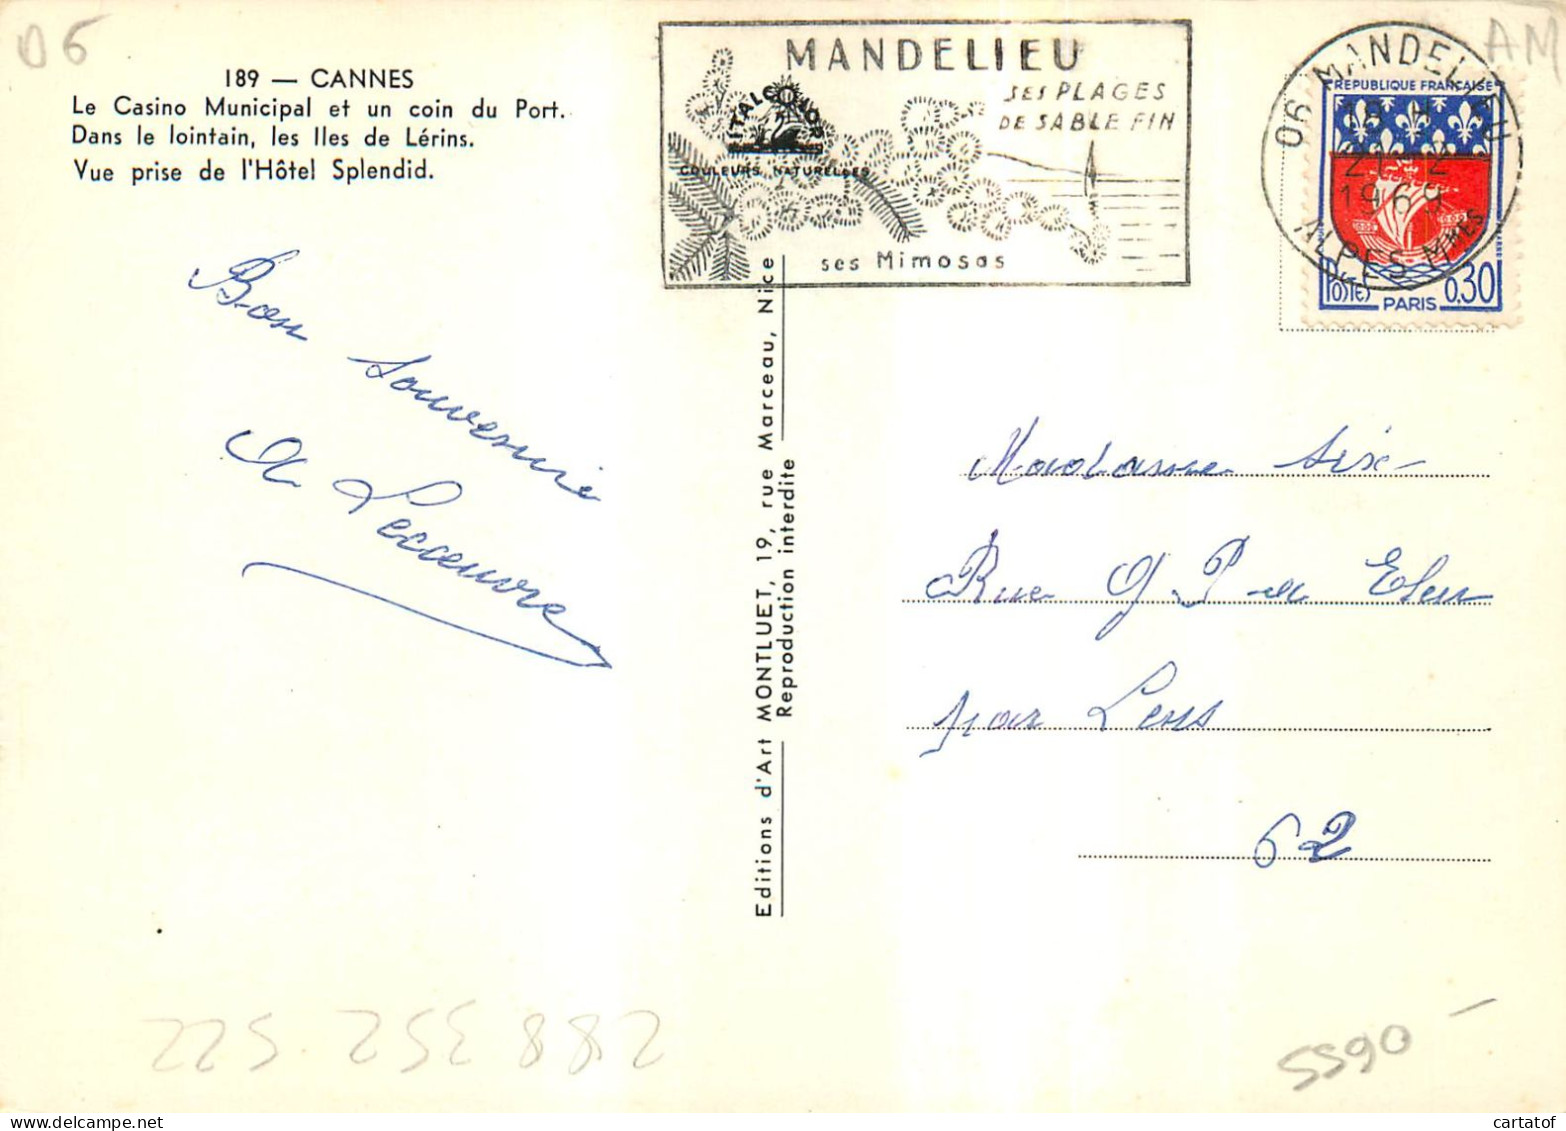 06
189 — CANNES
Le Casino Municipal et un coin du Port.
Dans le lointain, les Iles de Lérins.
Vue prise de l'Hôtel Splendid.
MANDELIEU
SES PLAGES
DE SABLE FIN
ses Mimosas
ITALCOLOR
COULEURS NATURELLES
06 MANDELIEU
18 H
21 -2
1969
ALPES MMES
AM
REPUBLIQUE FRANÇAISE
POSTES PARIS 0,30
Bon souvenir
Lecoeuvre
Editions d'Art MONTLUET, 19, rue Marceau, Nice
Reproduction interdite
Madame Six
Rue
par Lens
62
225 352 882
5590
cartatof